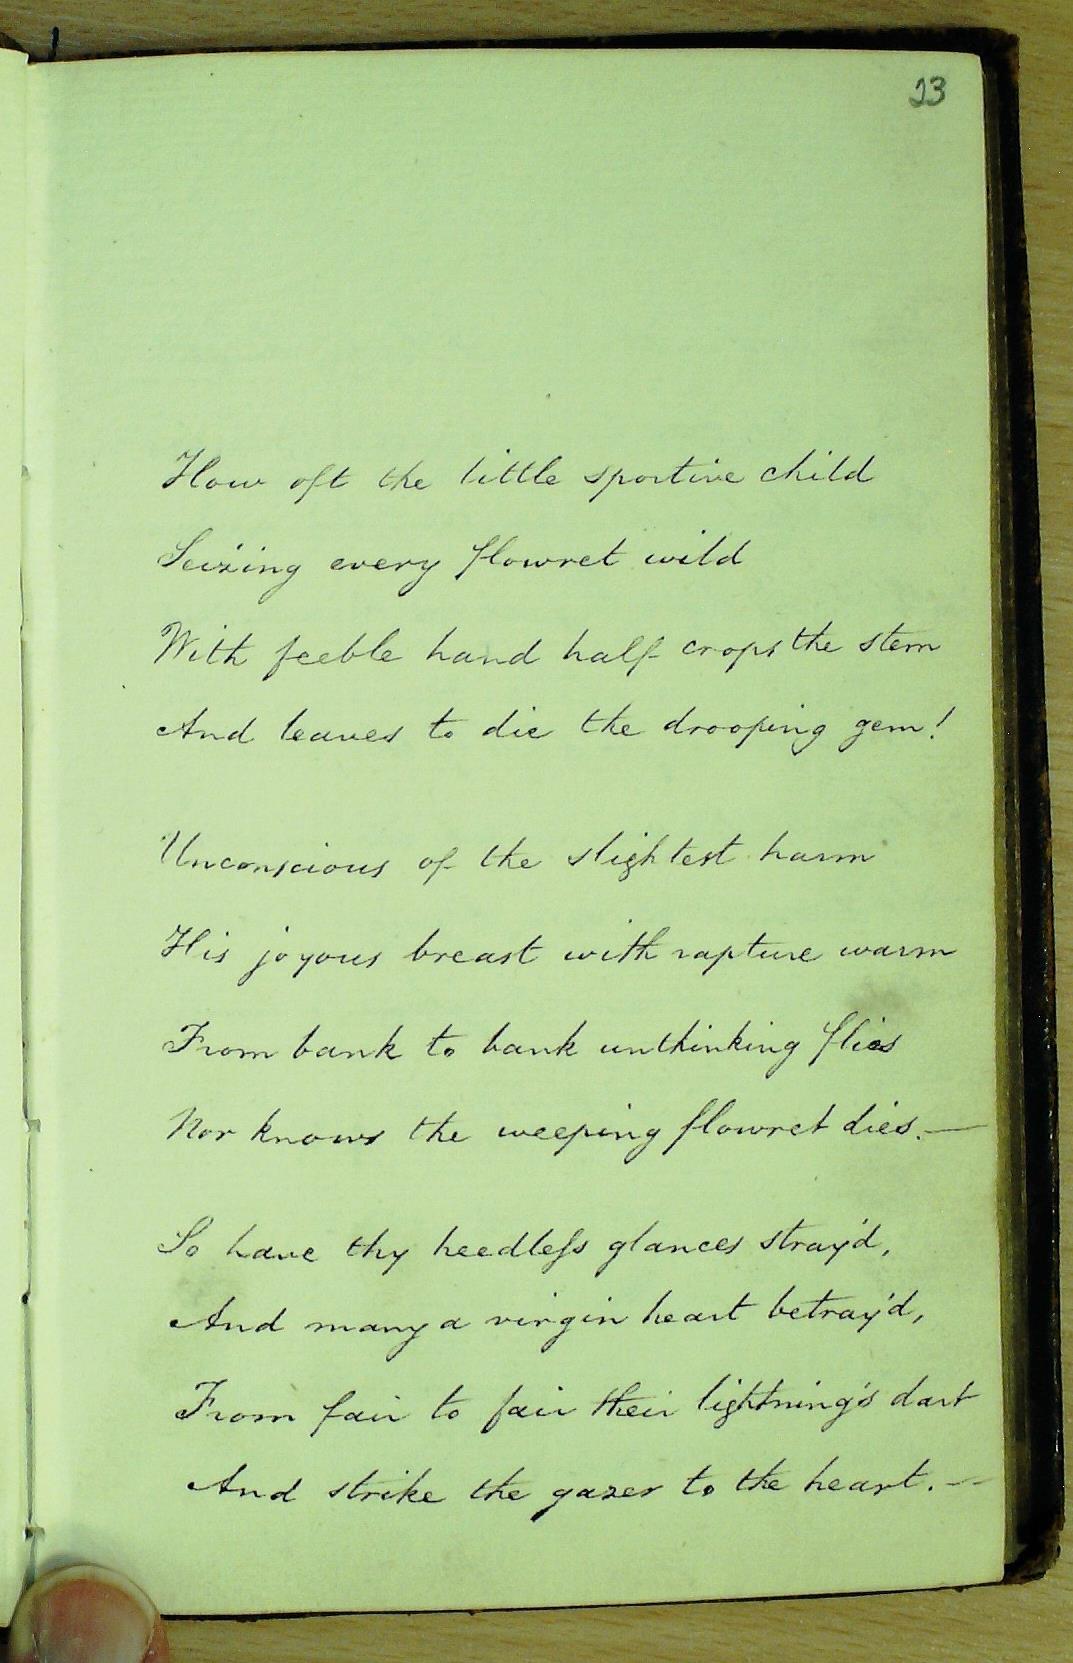 23
How oft the little sportive child
Seizing every flowret wild
With feeble hand half crops the stem
And leaves to die the drooping gem!
Unconscious of the slightest harm
His joyous breast with rapture warm
From bank to bank unthinking flies
Nor knows the weeping flowret dies.—
So have thy heedleſs glances stray'd,
And many a virgin heart betray'd,
From fair to fair their lightning's dart
And strike the gazer to the heart.—